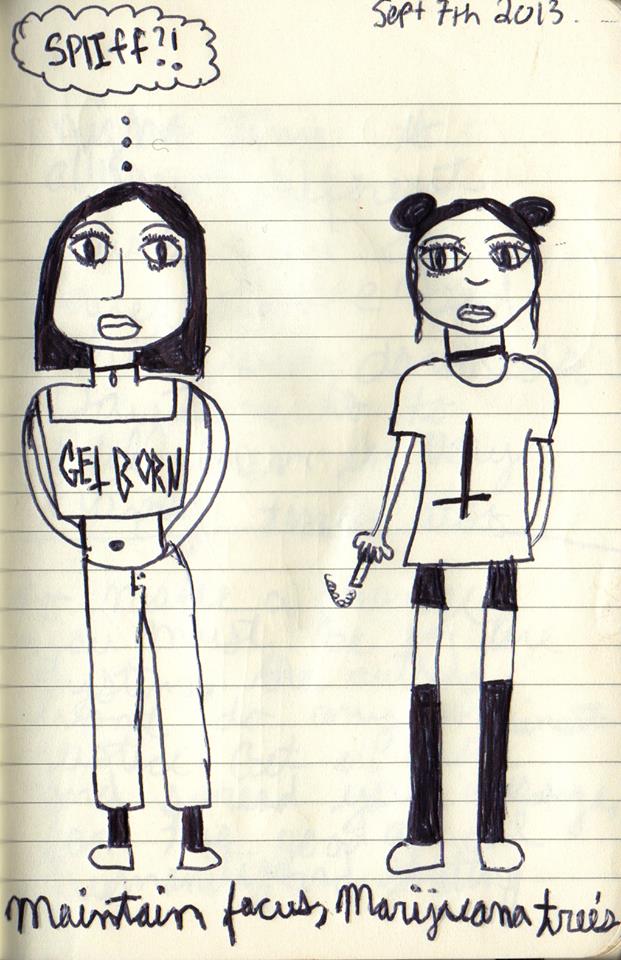 Sept 7th 2013.
SPlIff?!
GEt BORN
Maintain focus, Marijuana tree's